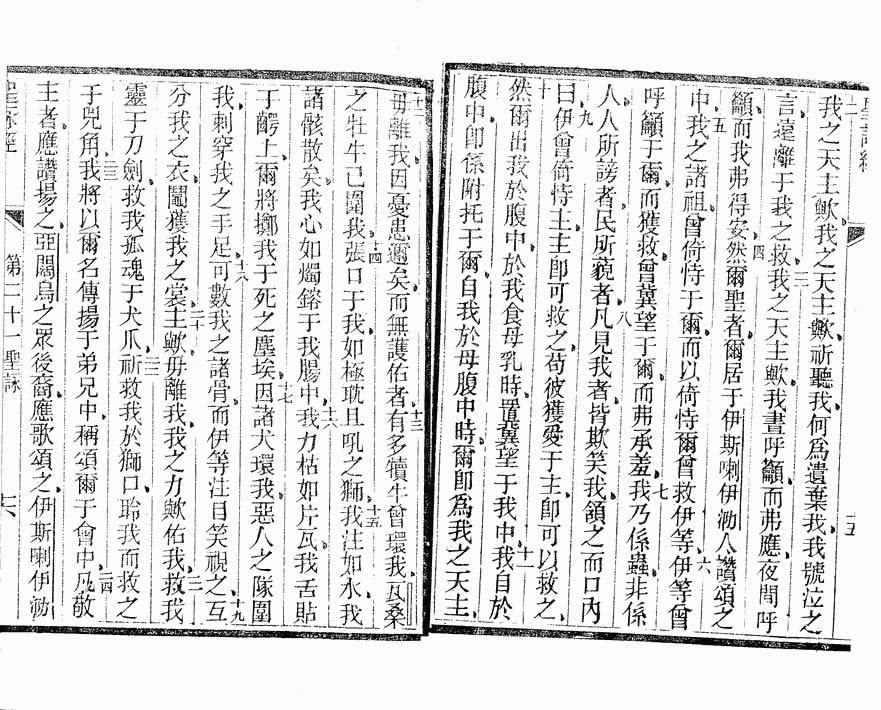 聖詠經
十五
二
我之天主歟我之天主歟祈聽我何爲遺棄我我號泣之
三
言遠離于我之救我之天主歟我晝呼籲而弗應夜間呼
四
籲而我弗得安然爾聖者爾居于伊斯喇伊泐人讚頌之
五 六
中我之諸祖曾倚恃于爾而以倚恃爾曾救伊等伊等曾
七
呼籲于爾而獲救曾冀望于爾而弗承羞我乃係蟲非係
八
人人所謗者民所藐者凡見我者皆欺笑我頷之而口內
九
曰伊曾倚恃主主卽可救之苟彼獲愛于主卽可以救之
十 十一
然爾出我於腹中於我食母乳時置冀望于我中我自於
腹中卽係附托于爾自我於母腹中時爾卽爲我之天主
十二 十三
毋離我因憂患邇矣而無護佑者有多犢牛曾環我瓦桑
十四 十五
之牡牛已圍我張口于我如極耽且吼之獅我注如水我
十六
諸骸散矣我心如燭鎔于我腸中我力枯如片瓦我舌貼
十七
于齶上爾將擲我于死之塵埃因諸犬環我惡人之隊圍
十八 十九
我刺穿我之手足可數我之諸骨而伊等注目笑視之互
二十
分我之衣鬮獲我之裳主歟毋離我我之力歟佑我救我
靈于刀劍救我孤魂于犬爪祈救我於獅口聆我而救之
于兕角我將以爾名傳揚于弟兄中稱頌爾于會中凡敬
主者應讚揚之亞闊烏之眾後裔應歌頌之伊斯喇伊泐
聖詠經
第二十一聖詠
十六